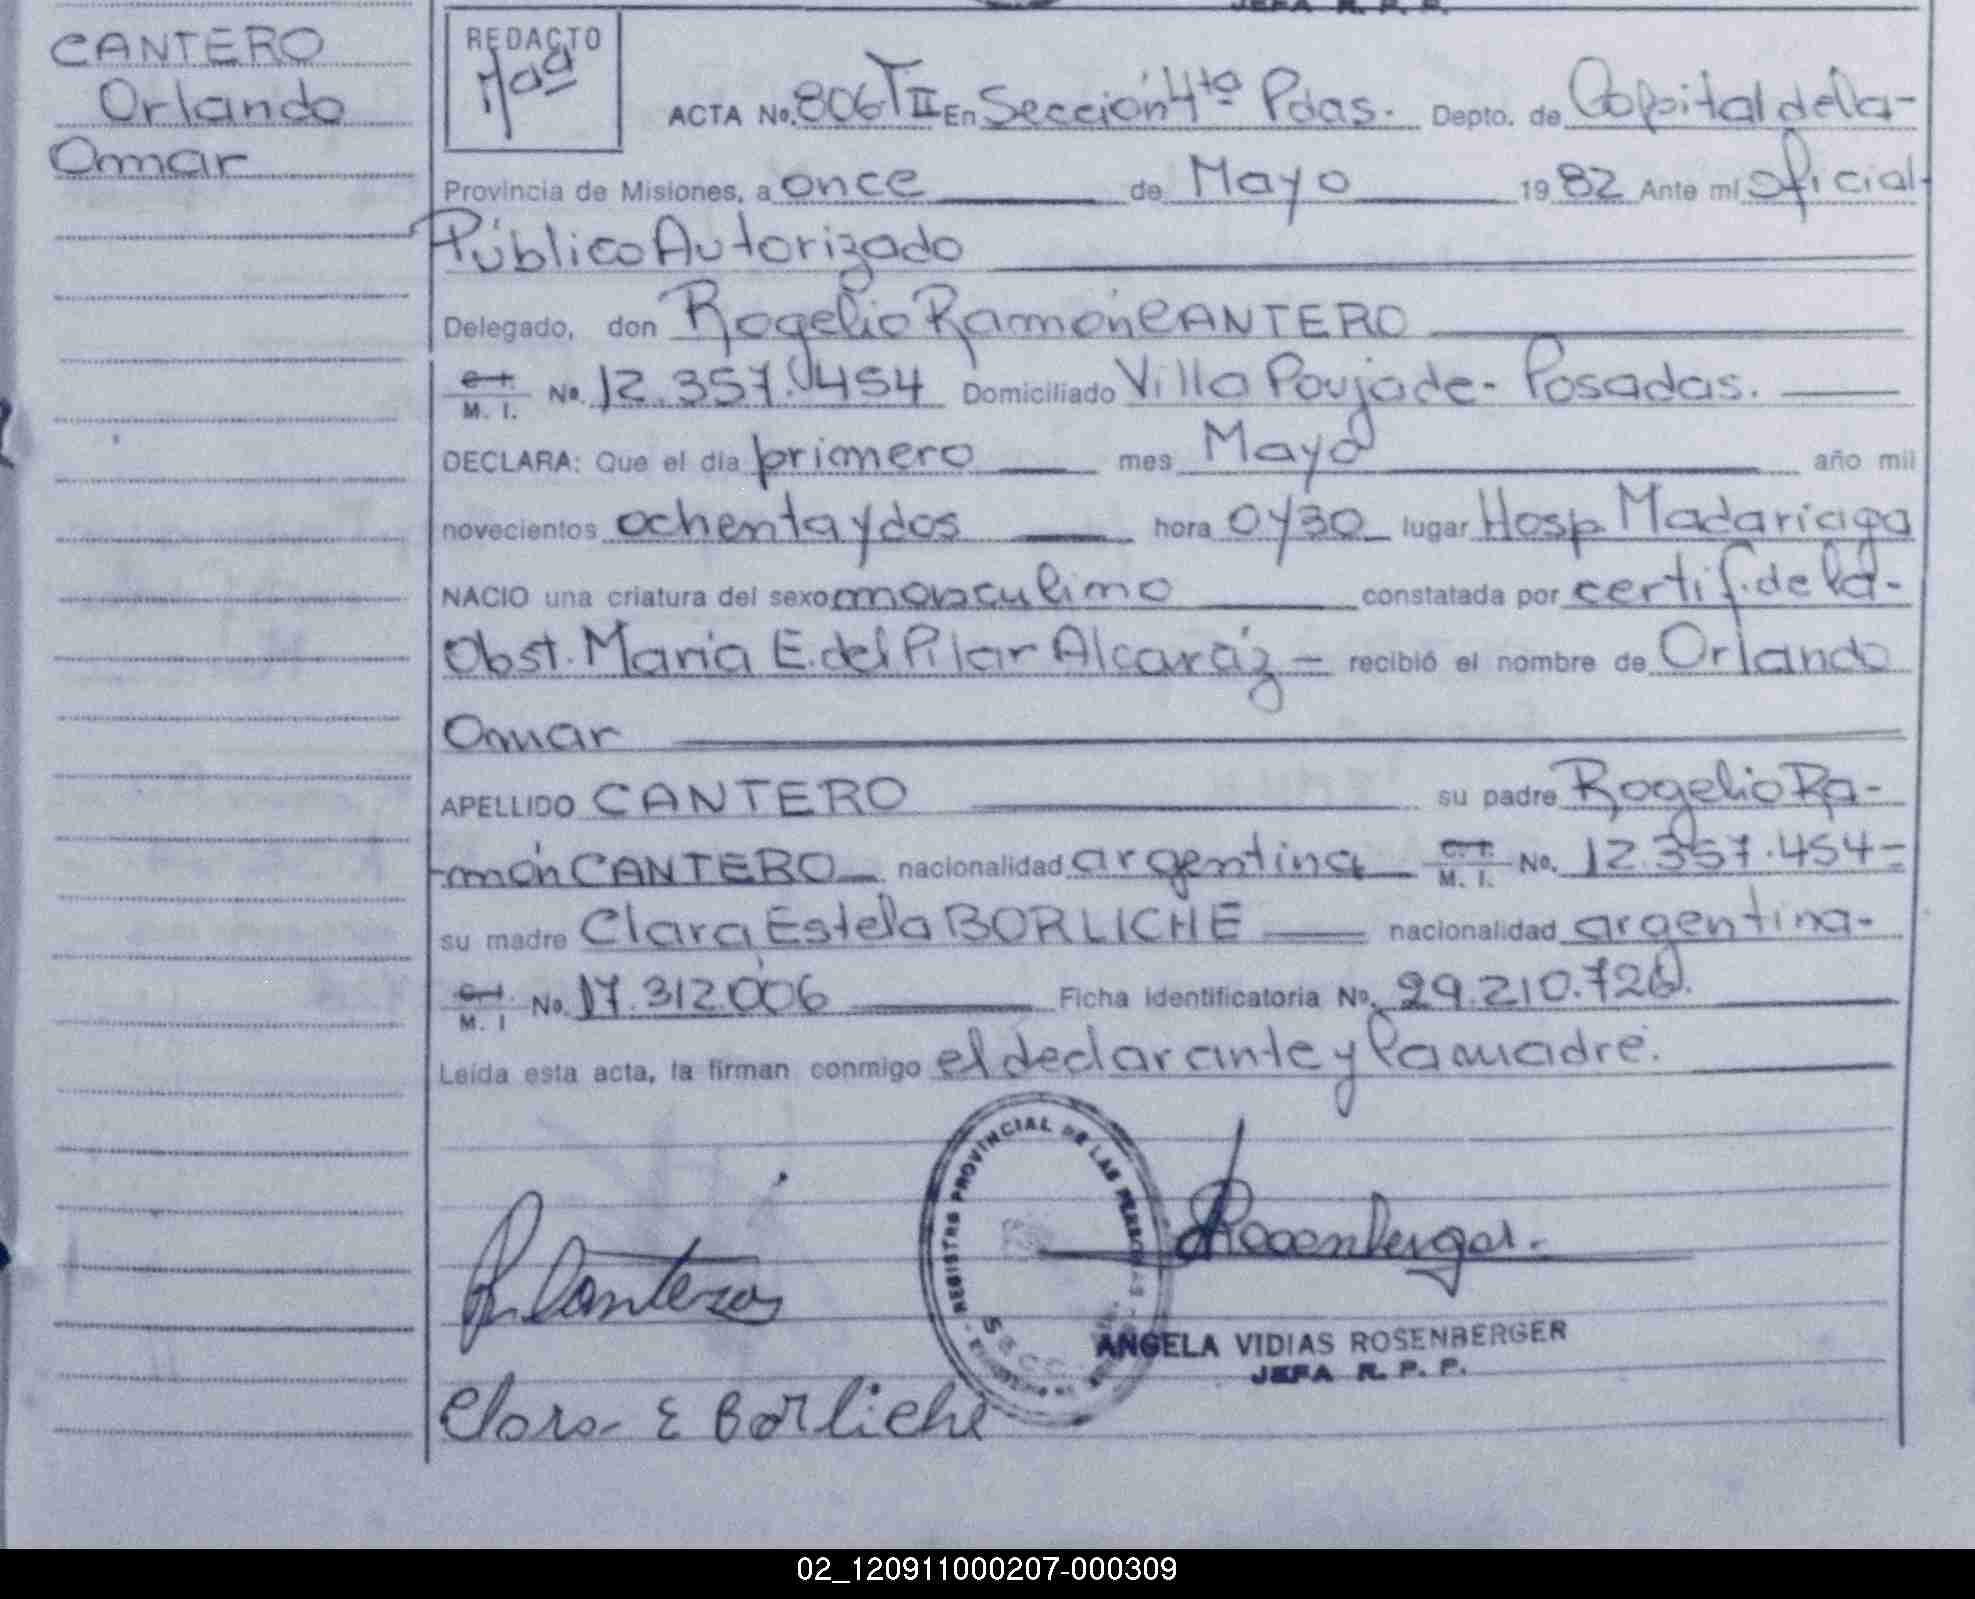 JEFA R. P. P.
CANTERO
Orlando
Omar
REDACTO
ACTA No. 806 T II En Sección 4ta Pdas. Depto. de Capital de la-
Provincia de Misiones, a once de Mayo 1982 Ante mí oficial
Público Autorizado
Delegado, don Rogelio Ramón CANTERO
C. I. M. I. No. 12.357.454 Domiciliado Villa Poujade - Posadas.
DECLARA: Que el día primero mes Mayo año mil
novecientos ochenta y dos hora 0y30 lugar Hosp. Madariaga
NACIO una criatura del sexo masculino constatada por certif. de la-
Obst. María E. del Pilar Alcaráz - recibió el nombre de Orlando
Omar
APELLIDO CANTERO su padre Rogelio Ra-
-món CANTERO nacionalidad argentina C. I. M. I. No. 12.357.454-
su madre Clara Estela BORLICHE nacionalidad argentina-
C. I. M. I No. 17.312.006 Ficha Identificatoria No. 29.210.726.
Leída esta acta, la firman conmigo el declarante y la madre.
REGISTRO PROVINCIAL DE LAS PERSONAS
R. Cantero
Rosenberger.
ANGELA VIDIAS ROSENBERGER
JEFA R. P. P.
Clara E Borliche
02_120911000207-000309